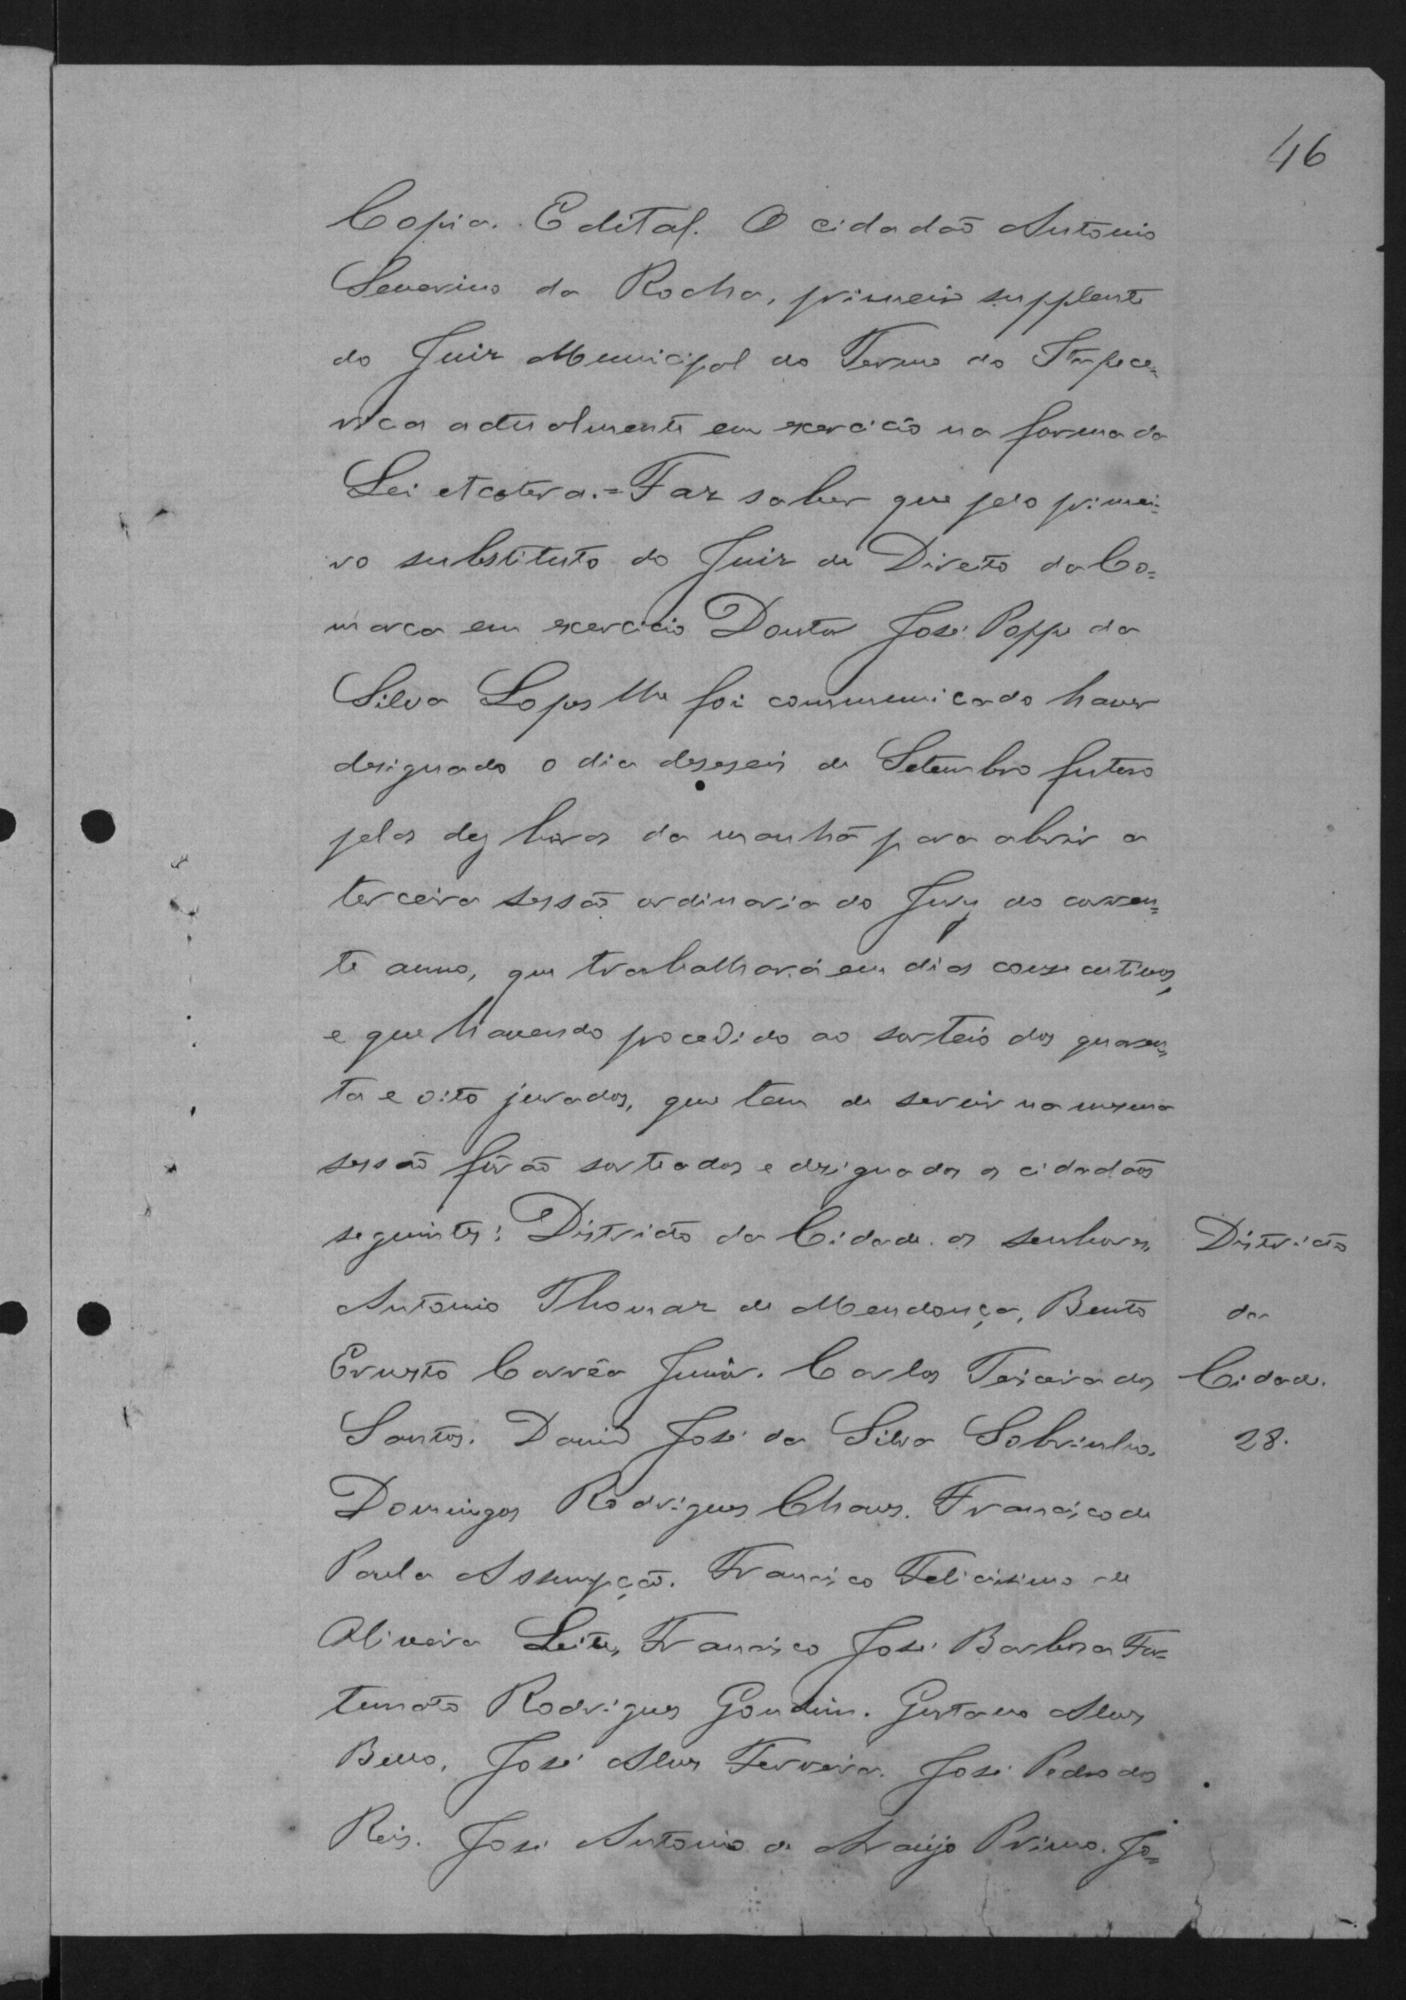 46
Copia. Edital. O cidadão Antonio
Severino da Rocha, primeiro supplente
do Juiz Municipal do Termo do Itapece=
rica actualmente em exercicio na forma da
Lei etcetera.= Faz saber que pelo primei=
ro substituto do Juiz de Direito da Co=
marca em exercicio Doutor José Poppe da
Silva Lopes lhe foi communicado haver
designado o dia deseseis de Setembro futuro
pelas dez horas da manhã para abrir a
terceira sessão ordinaria do Jury do corren=
te anno, que trabalhará em dias consecutivos,
e que havendo procedido ao sorteio dos quaren=
ta e oito jurados, que tem de servir na mesma
sessão forão sorteados e designados os cidadãos
seguintes: Districto da Cidade os senhores,
Districto
Antonio Thomaz de Mendonça, Bento
da
Ernesto Corrêa Junior. Carlos Teixeira dos
Cidade.
Santos. David José da Silva Sobrinho.
28.
Domingos Rodrigues Chaves. Francisco de
Paula Assumpção. Francisco Felicissimo de
Oliveira Leite, Francisco José Barbosa For=
tunato Rodrigues Gondim. Gustavo Alves
Bello, José Alves Ferreira. José Pedro dos
Reis. José Antonio de Araujo Primo. Jo=